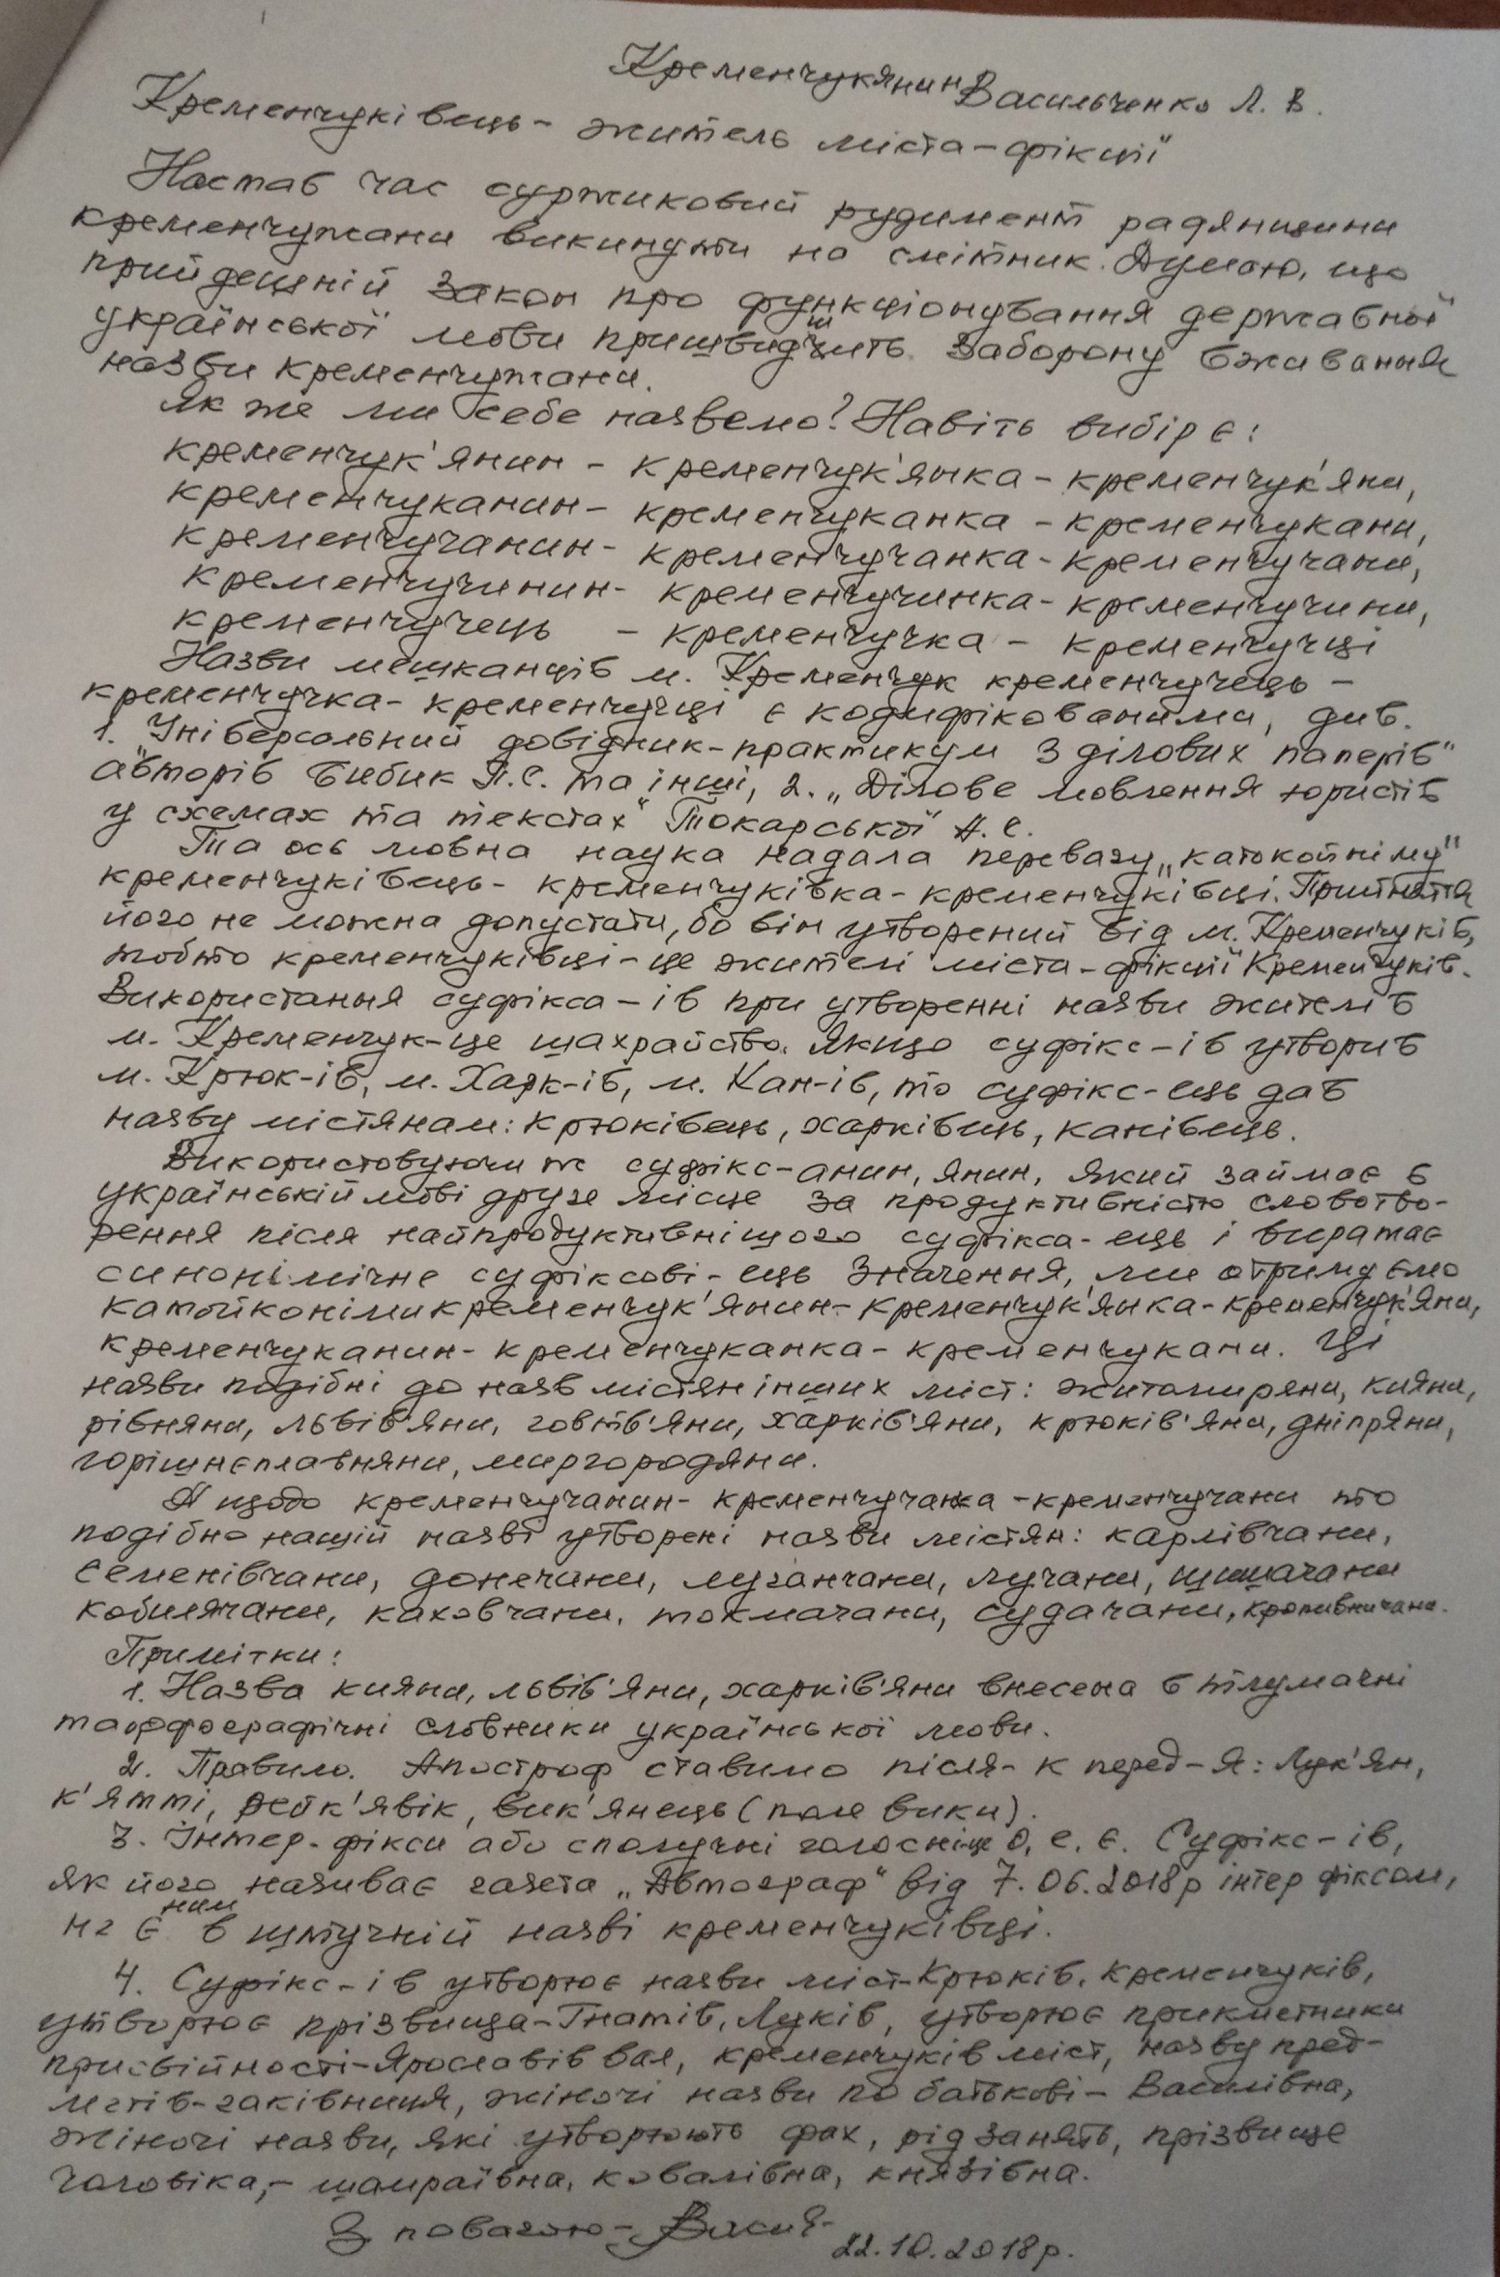 Кременчукянин Васильченко Л. В.
Кременчуківець - житель міста-фікції
Настав час суржиковий рудимент радянщини
кременчужани викинути на смітник. Думаю, що
прийдешній Закон про функціонування державної
української мови пришвидшить заборону вживання
назви кременчужани.
Як же ми себе назвемо? Навіть вибір є:
кременчук'янин - кременчук'янка - кременчук'яни,
кременчуканин - кременчуканка - кременчукани,
кременчучанин - кременчучанка - кременчучани,
кременчучинин - кременчучинка - кременчучини,
кременчучець - кременчучка - кременчучці
Назви мешканців м. Кременчук кременчучець -
кременчучка - кременчучці є кодифікованими, див.
1. Універсальний довідник-практикум з ділових паперів"
авторів Бибик П.С. та інші, 2. „Ділове мовлення юристів
у схемах та текстах" Токарської А.С.
Та ось мовна наука надала перевагу „катокойніму"
кременчуківець - кременчуківка - кременчуківці. Прийняття
його не можна допустати, бо він утворений від м. Кременчуків,
тобто кременчуківці - це жителі міста-фікції Кременчуків.
Використання суфікса - ів при утворенні назви жителів
м. Кременчук - це шахрайство. Якщо суфікс - ів утворив
м. Крюк-ів, м. Харк-ів, м. Кан-ів, то суфікс - ець дав
назву містянам: крюківець, харківець, канівець.
Використовуючи ж суфікс - анин, янин, який займає в
українській мові друге місце за продуктивністю словотво-
рення після найпродуктивнішого суфікса - ець і виражає
синонімічне суфіксові - ець значення, ми отримуємо
катойконіми кременчук'янин - кременчук'янка - кременчук'яни,
кременчуканин - кременчуканка - кременчукани. Ці
назви подібні до назв містян інших міст: житомиряни, кияни,
рівняни, львів'яни, говтв'яни, харків'яни, крюків'яни, дніпряни,
горішнєплавняни, миргородяни.
А щодо кременчучанин - кременчучанка - кременчучани то
подібно нашій назві утворені назви містян: карлівчани,
семенівчани, донечани, луганчани, лучани, шишачани
кобилячани, каховчани, токмачани, судачани, кропивничани.
Примітки:
1. Назва кияни, львів'яни, харків'яни внесена в тлумачні
та орфографічні словники української мови.
2. Правило. Апостроф ставимо після - к перед - я: Лук'ян,
к'ятті, Рейк'явік, вик'янець (поле вики).
3. Інтер-фікси або сполучні голосні це о, е, є. Суфікс - ів,
як його називає газета „Автограф" від 7.06.2018р інтерфіксом,
не є ним в штучній назві кременчуківці.
4. Суфікс - ів утворює назви міст - Крюків, Кременчуків,
утворює прізвища - Гнатів, Луків, утворює прикметники
присвійності - Ярославів вал, кременчуків міст, назву пред-
метів - гаківниця, жіночі назви по батькові - Василівна,
жіночі назви, які утворюють фах, рід занять, прізвище
чоловіка, - шамраївна, ковалівна, князівна.
З повагою -
22.10.2018р.